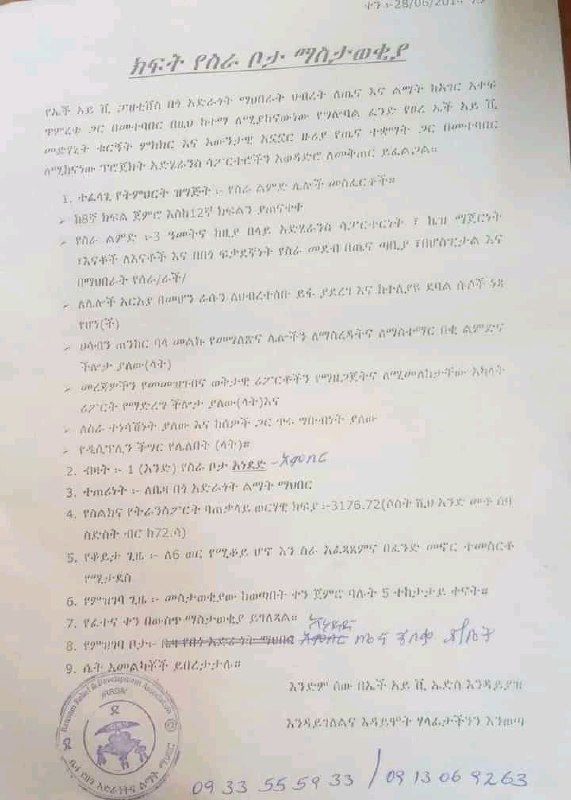 ቀን ፡-28/06/2014
ክፍት የስራ ቦታ ማስታወቂያ
የኤች አይ ቪ ፖዘቲቨስ በጎ አድራጎት ማህበራት ህብረት ለጤና እና ልማት ከአገር አቀፍ
ጥምረቱ ጋር በመተባበር በዚህ ከተማ ለሚያከናውነው የግሎባል ፈንድ የፀረ ኤች አይ ቪ
መድሃኒት ቁርኝት ምክክር እና አውንታዊ አኗኗር ዙሪያ የጤና ተቋማት ጋር በመተባበር
ለሚከናነው ፕሮጀክት አድሄራንስ ሳፖርተሮችን አወዳድሮ ለመቅጠር ይፈልጋል።
1. ተፈላጊ የትምህርት ዝግጅት ፡- የስራ ልምድ ሌሎች መስፈርቶች።
ከ8ኛ ክፍል ጀምሮ እስከ12ኛ ክፍልን ያጠናቀቀ
የስራ ልምድ ፡-3 ዓመትና ከዚያ በላይ አድሄራንስ ሳፖርተርነት ፣ ኬዝ ማጀርነት
፣እናቶች ለእናቶች እና በበጎ ፍታደኛነት የስራ መደብ በጤና ጣቢያ ፣በሆስፒታል እና
በማህበራት የሰራ/ራች/
ለሌሎች አርአያ በመሆን ራሱን ለህብረተሰቡ ይፋ ያደረገ እና ከተለያዩ ደባል ሱሶች ነፃ
የሆነ(ች)
ሀሳብን ጠንከር ባለ መልኩ የመግለጽና ሌሎችን ለማስረዳትና ለማስተማር በቂ ልምድና
ችሎታ ያለው(ላት)
መረጃዎችን የመመዝገብና ወቅታዊ ሪፖርቶችን የማዘጋጀትና ለሚመለከታቸው አካላት
ሪፖርት የማድረግ ችሎታ ያለው(ላት)እና
ለስራ ተነሳሽነት ያለው እና ከሰዎች ጋር ጥሩ ግቡብነት ያለው
የዲሲፕሊን ችግር የሌለበት (ላት)።
2. ብዛት ፡- 1 (አንድ) የስራ ቦታ
3. ተጠሪነት ፡- ለቤዛ በጎ አድራጎት ልማት ማህበር
4. የስልክና የትራንስፖርት ባጠቃላይ ወርሃዊ ክፍያ ፡-3176.72(ሶስት ሺህ አንድ መቶ ሰባ
ስድስት ብር ከ72.ሳ)
5. የቆይታ ጊዜ ፡- ለ6 ወር የሚቆይ ሆኖ እን ስራ አፈጻጸምና በፈንድ መኖር ተመስርቶ
የሚታደስ
6. የምዝገባ ጊዜ ፡- መስታወቂያው ከወጣበት ቀን ጀምሮ ባሉት 5 ተከታታይ ቀናት።
7. የፈተና ቀን በውስጥ ማስታወቂያ ይገለጻል።
8. የምዝገባ ቦታ፡- ቤዛ የበጎ አድራጎት ማህበር
9. ሴት አመልካቾች ይበረታታሉ።
እንድም ሰው በኤች አይ ቪ ኤድስ እንዳይያዝ
እንዳይገለልና እዳይሞት ሃላፊታችንን እንወጣ
09 33 55 59 33 / 09 13 06 92 63